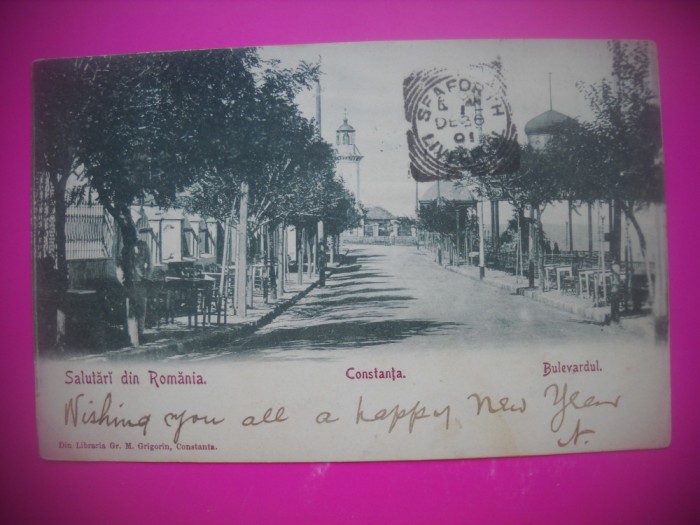 SEAFORTH
DE 26
01
LIVERPOOL
Salutări din România.
Constanţa.
Bulevardul.
Wishing you all a happy New Year
N.
Din Libraria Gr. M. Grigoriu, Constanta.